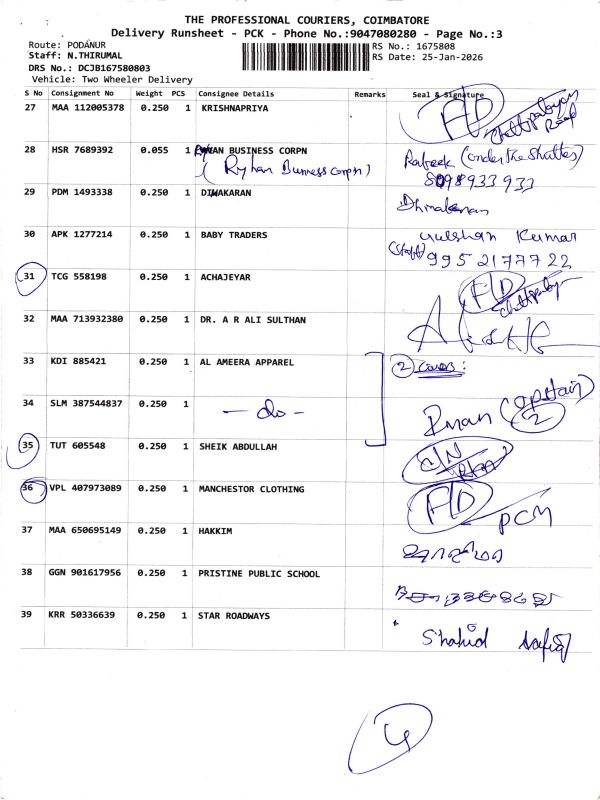 THE PROFESSIONAL COURIERS, COIMBATORE
Delivery Runsheet - PCK - Phone No.:9047080280 - Page No.:3
Route: PODANUR RS No.: 1675808
Staff: N.THIRUMAL RS Date: 25-Jan-2026
DRS No.: DCJB167580803
Vehicle: Two Wheeler Delivery
S No Consignment No Weight PCS Consignee Details Remarks Seal & Signature
27 MAA 112005378 0.250 1 KRISHNAPRIYA F/D
28 HSR 7689392 0.055 1 BUSINESS CORPN Rafeek (Under The Shutter)
(Ryhan Business Corpn) 8098933933
29 PDM 1493338 0.250 1 DIWAKARAN
30 APK 1277214 0.250 1 BABY TRADERS Gulshan Kumar
(Staff) 9952177722
31 TCG 558198 0.250 1 ACHAJEYAR F/D
32 MAA 713932380 0.250 1 DR. A R ALI SULTHAN
33 KDI 885421 0.250 1 AL AMEERA APPAREL 2 Covers:
34 SLM 387544837 0.250 1 - do - 2
35 TUT 605548 0.250 1 SHEIK ABDULLAH C/N
36 VPL 407973089 0.250 1 MANCHESTOR CLOTHING F/D PCM
37 MAA 650695149 0.250 1 HAKKIM
38 GGN 901617956 0.250 1 PRISTINE PUBLIC SCHOOL
39 KRR 50336639 0.250 1 STAR ROADWAYS Shahid
4